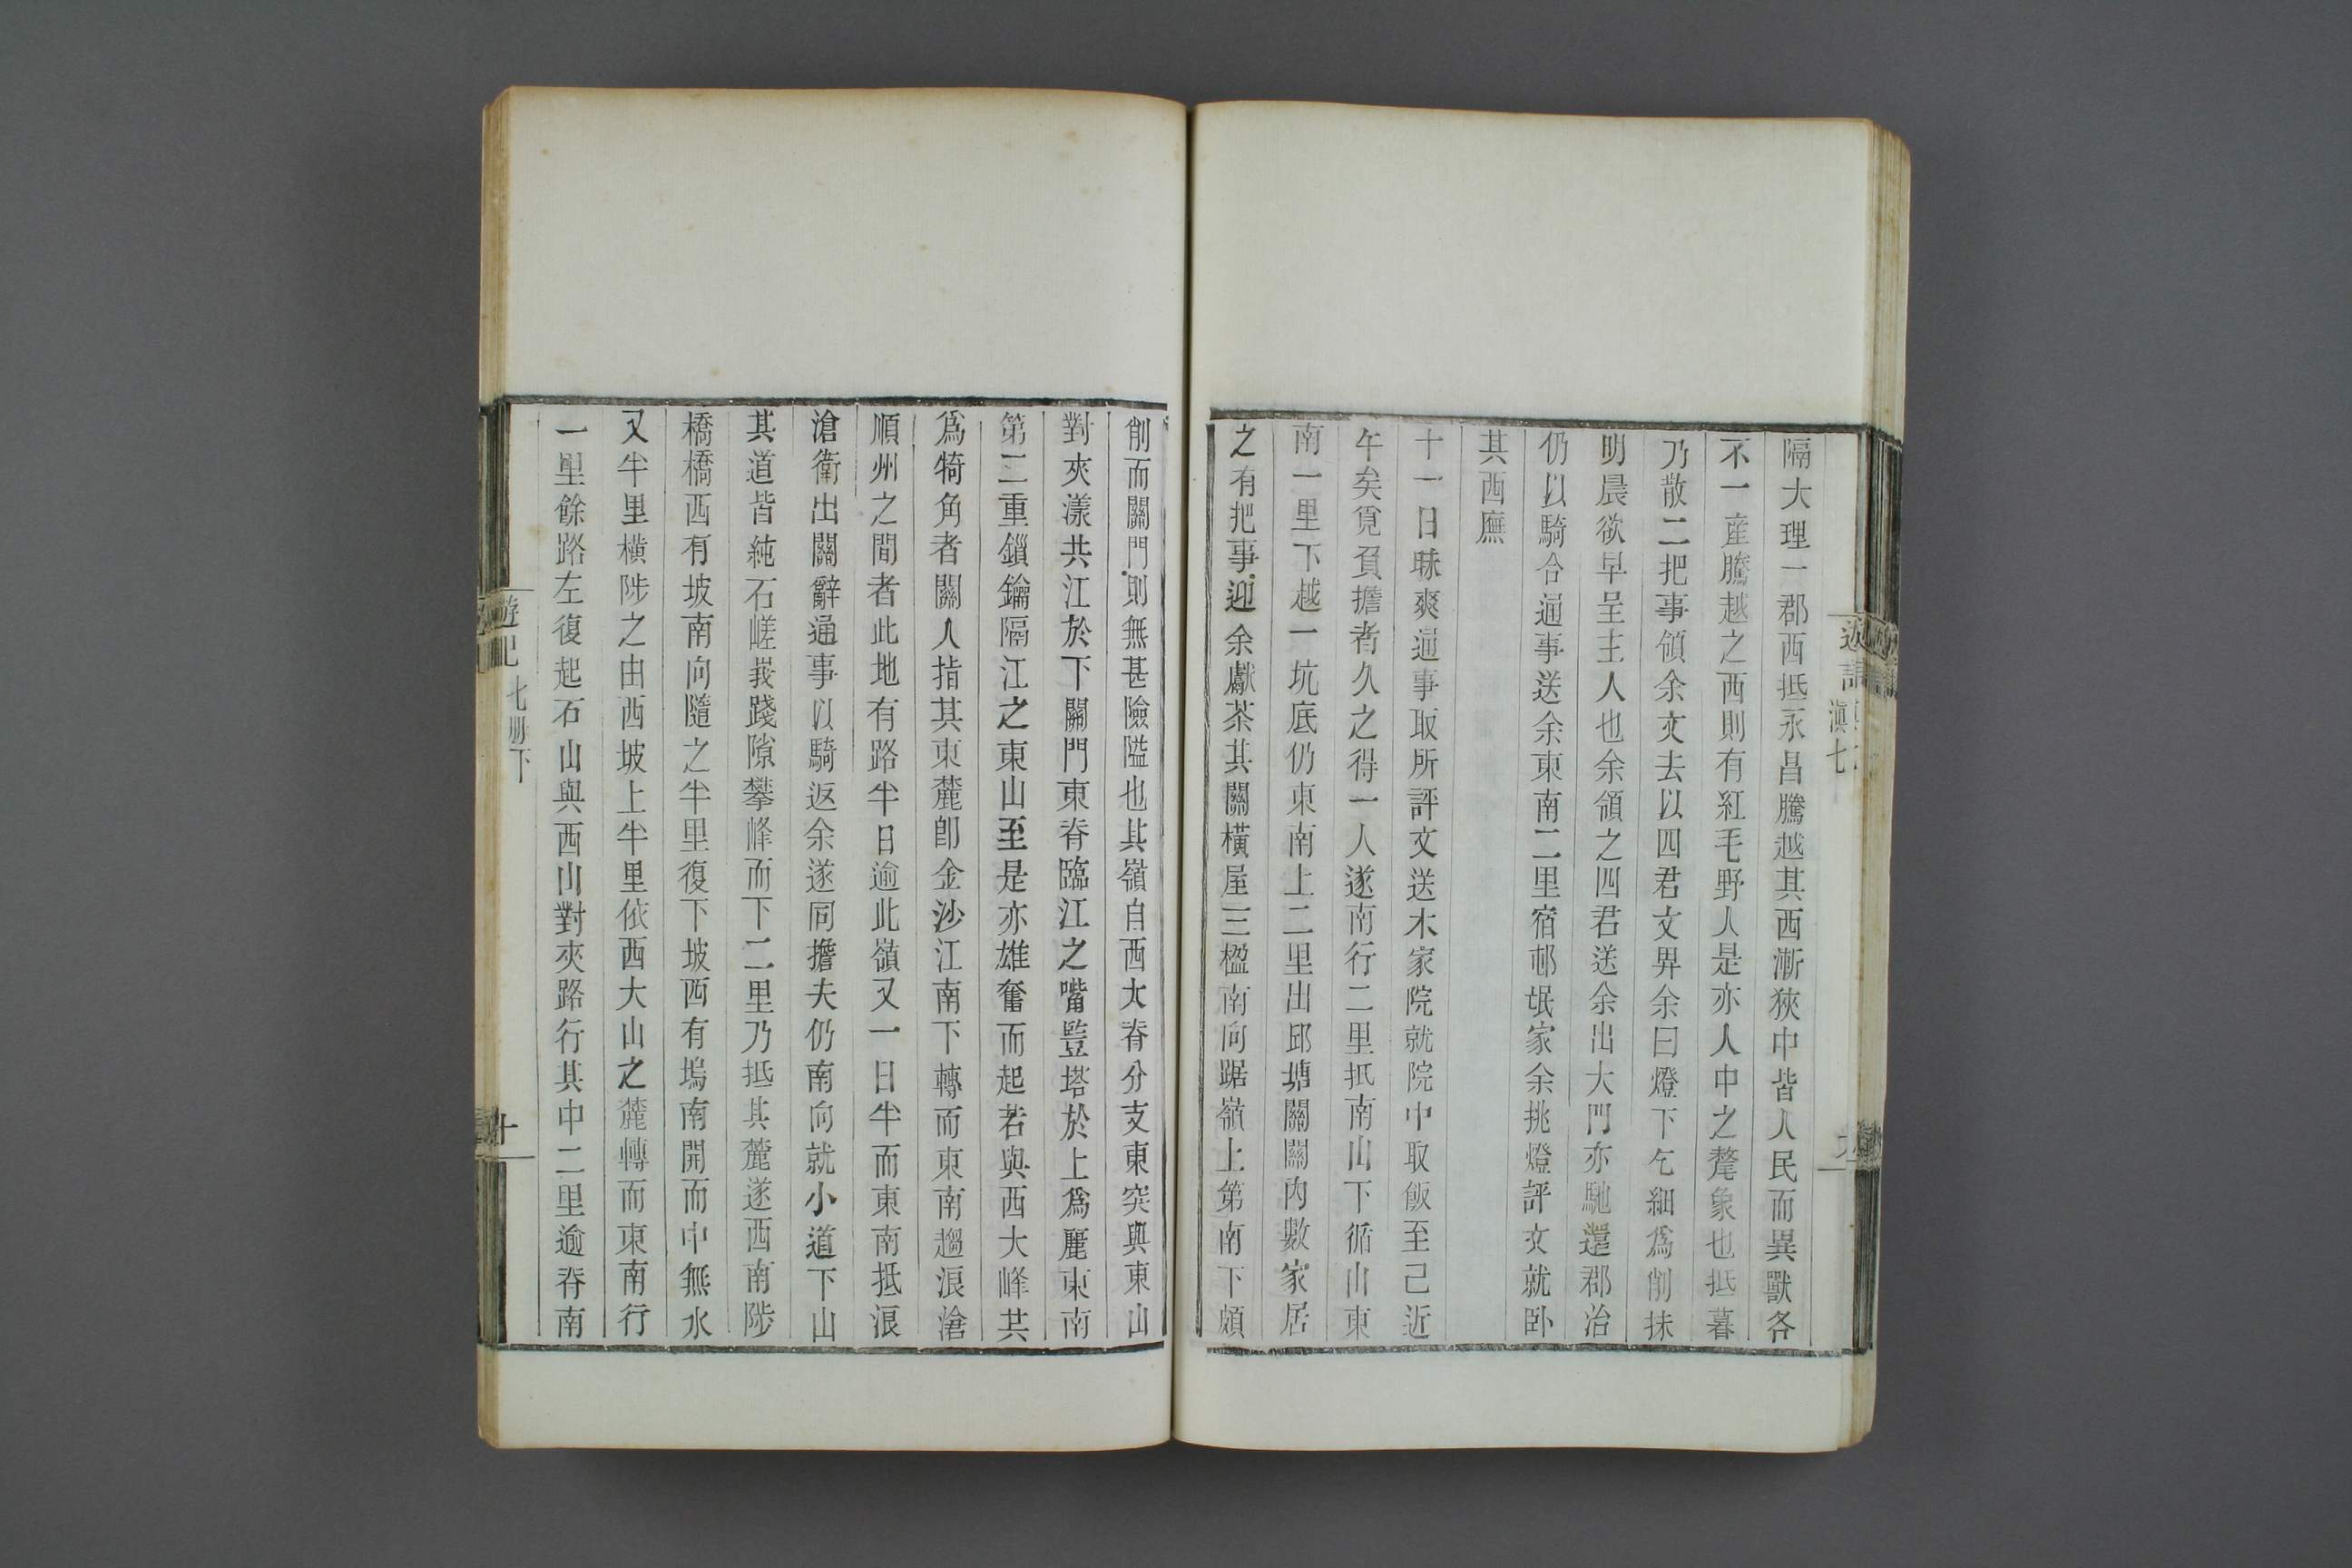 隔大理一郡西抵永昌騰越其西漸狹中皆人民而異獸各
不一産騰越之西則有紅毛野人是亦人中之氂象也抵暮
乃散二把事領余文去以四君文畀余曰燈下乞細爲削抹
明晨欲早呈主人也余頷之四君送余出大門亦馳還郡治
仍以騎合通事送余東南二里宿邨氓家余挑燈評文就卧
其西廡
十一日昧爽通事取所評文送木家院就院中取飯至己近
午矣覓負擔者久之得一人遂南行二里抵南山下循山東
南一里下越一坑底仍東南上二里出邱塘關關内數家居
之有把事迎余獻茶其關横屋三楹南向踞嶺上第南下頗
削而關門則無甚險隘也其嶺自西大脊分支東突與東山
對夾漾共江於下關門東脊臨江之嘴豎塔於上爲麗東南
第二重鎖鑰隔江之東山至是亦雄奮而起若與西大峰共
爲犄角者關人指其東麓卽金沙江南下轉而東南趨浪滄
順州之間者此地有路半日逾此嶺又一日半而東南抵浪
滄衛出關辭通事以騎返余遂同擔夫仍南向就小道下山
其道皆純石嵯峩踐隙攀峰而下二里乃抵其麓遂西南陟
橋橋西有坡南向隨之半里復下坡西有塢南開而中無水
又半里横陟之由西坡上半里依西大山之麓轉而東南行
一里餘路左復起石山與西山對夾路行其中二里逾脊南
遊記
七册下
十